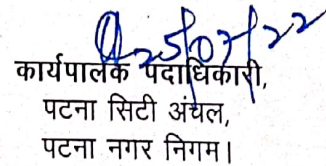 25/07/22
कार्यपालक पदाधिकारी,
पटना सिटी अंचल,
पटना नगर निगम।